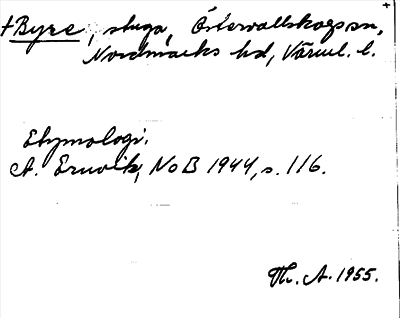 +Byre, stuga, Östervallskogs sn,
Nordmarks hd, Värml. l.
Etymologi.
A. Ernvik, NoB 1944, s. 116.
Th. A. 1955.